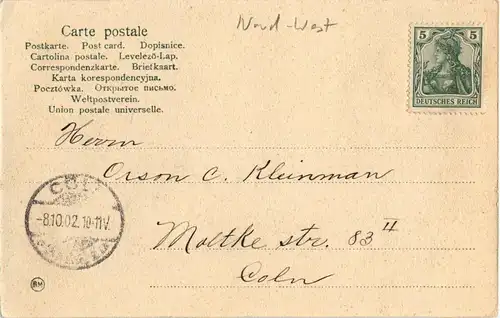 Nord-West
Carte postale
Postkarte. Post card. Dopisnice.
Cartolina postale. Levelező-Lap.
Correspondenzkarte. Briefkaart.
Karta korespondencyjna.
Pocztówka. Открытое письмо.
Weltpostverein.
Union postale universelle.
5 5
DEUTSCHES REICH
Herrn
Orson C. Kleinman
CÖLN
-8.10.02.10-11V.
Moltke str. 83 II
Coln
BM